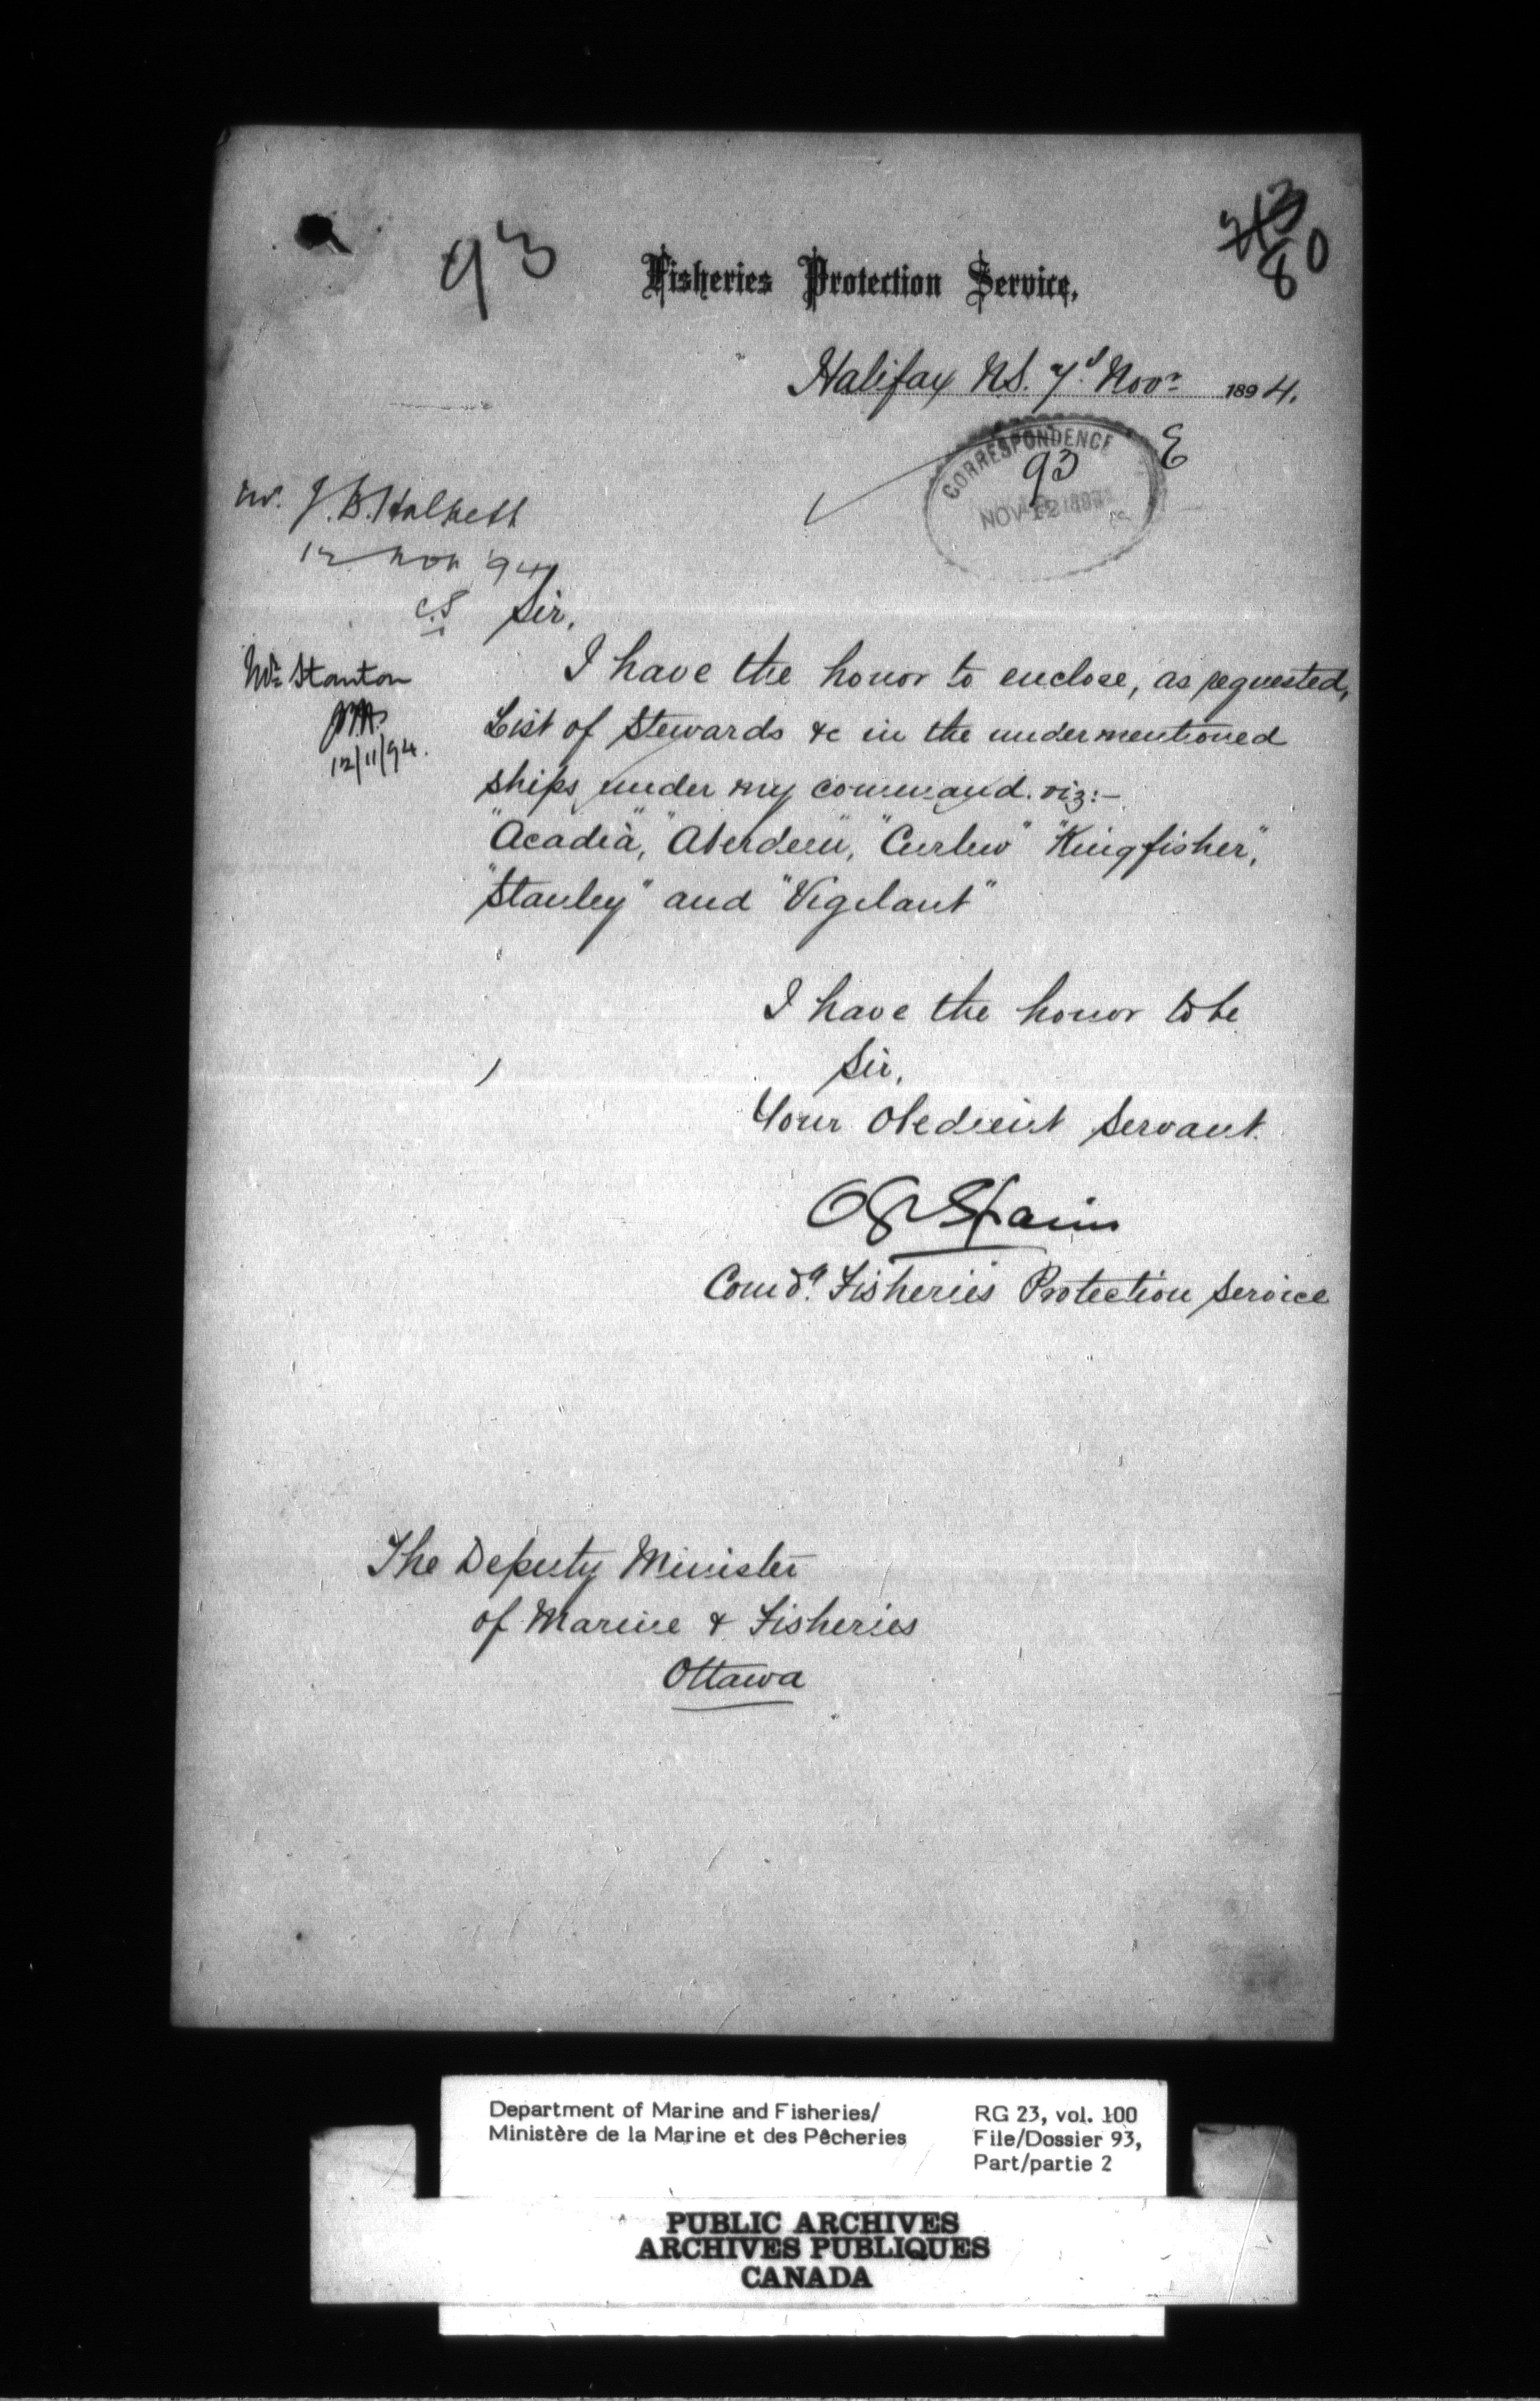 93
80
Fisheries Protection Service,
Halifax N.S. 7th Novr 1894.
CORRESPONDENCE
93
NOV 12 189
E
Mr. J. B. Halkett
12 Nov 94
C.S
Mr Stanton
12/11/94.
Sir,
I have the honor to enclose, as requested,
List of Stewards &c in the undermentioned
ships under my command. viz:-
"Acadia", "Aberdeen", "Curlew" "Kingfisher",
"Stanley" and "Vigilant"
I have the honor to be
Sir,
Your Obedient Servant.
OGV Spain
Comdg. Fisheries Protection Service
The Deputy Minister
of Marine & Fisheries
Ottawa
Department of Marine and Fisheries/
Ministère de la Marine et des Pêcheries
RG 23, vol. 100
File/Dossier 93,
Part/partie 2
PUBLIC ARCHIVES
ARCHIVES PUBLIQUES
CANADA